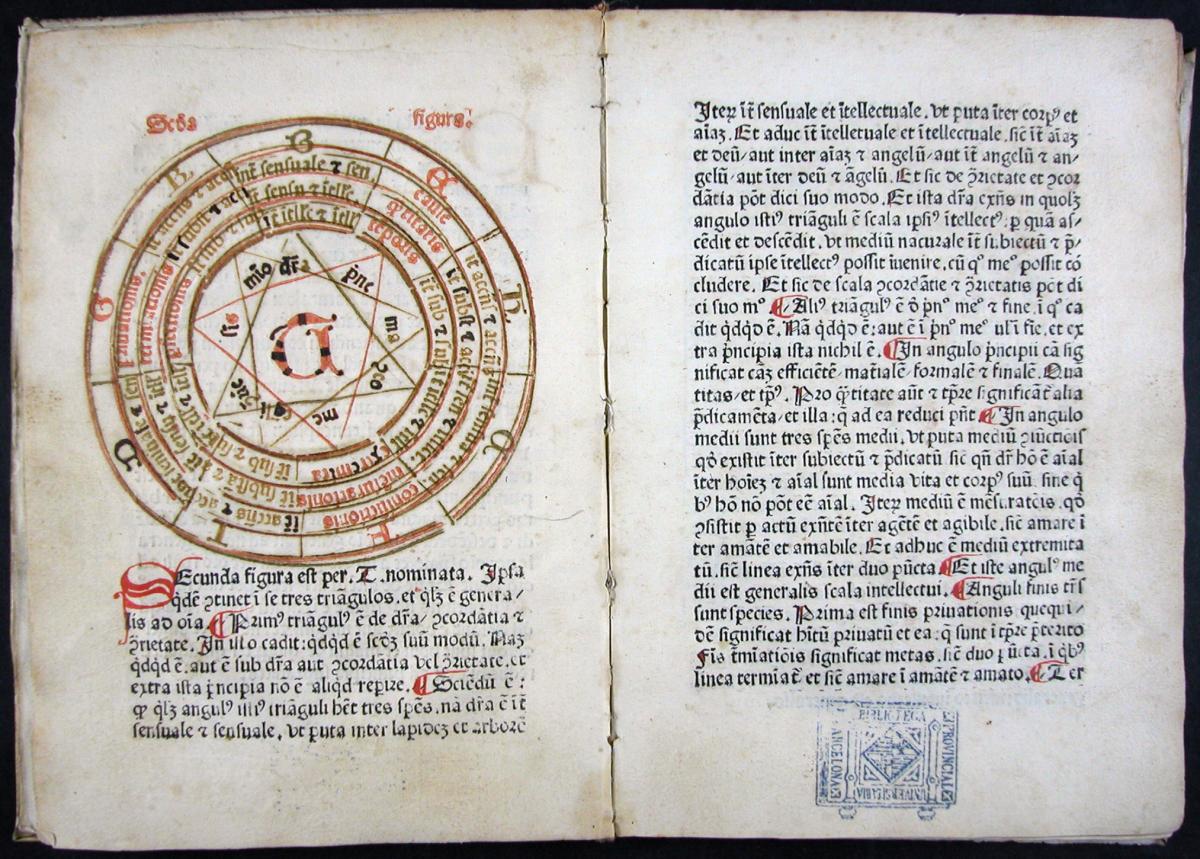 Scda figura.
B
C
E
H
K
F
I
D
G
R
T
causę
q̃titatis
tēporis
priuationis.
terminationis
perfectionis
extrema
mēsurationis
coniunctionis
īt̄ sensuale ⁊ sen
īt̄ sensu ⁊ ītelle.
īt̄ ītelle ⁊ ītelle
dr̄a
pñc
SEcunda figura est per. T. nominata. Ipsa
q̇dē ꝯtinet ī se tres triāgulos. et q̄lꝫ ē genera⸗
lis ad oīa. ¶ Primꝰ triāgulꝰ ē de dr̄a⸗ ꝯcordātia ⁊
ꝯ̄rietate. In illo cadit: qdqd ē scd̄ꝫ suū modū. Naꝫ
qdqd ē. aut ē sub dr̄a aut ꝯcordātia vel ꝯ̄rietate. et
extra ista prīncipia nō ē aliqd reperire. ¶ Sciēdū ē:
ꝙ q̄lꝫ angulꝰ illiꝰ triāguli h̄et tres sp̄es. nā dr̄a ē īt̄
sensuale ⁊ sensuale, vt puta inter lapideꝫ et arborē
Iteꝝ īt̄ sensuale et ītellectuale. vt puta īter corpꝰ et
aīaꝫ. Et aduc īt̄ ītellectuale et ītellectuale. sic̄ īt̄ aīaꝫ
et deū⸗ aut inter aīaꝫ ⁊ angelū⸗ aut īt̄ angelū ⁊ an⸗
gelū⸗ aut īter deū ⁊ āgelū. Et sic de ꝯ̄rietate et ꝯcor
dātia pōt dici suo modo. Et ista dr̄a exn̄s in quolꝫ
angulo istiꝰ triāguli ē scala ipsiꝰ ītellectꝰ: ꝑ quā as⸗
cēdit et descēdit. vt mediū naturale īt̄ subiectū ⁊ p̄⸗
dicatū ipse ītellectꝰ possit īuenire. cū qͦ meͦ possit cō
cludere. Et sic de scala ꝯcordātie ⁊ ꝯ̄rietatis pōt di
ci suo mͦ. ¶ Aliꝰ triāgulꝰ ē ō pñͦ meͦ ⁊ fine. ī qͦ ca
dit qdqd ē. Nā qdqd ē: aut ē ī pñͦ meͦ ul ī fie. et ex
tra prīncipia ista nichil ē. ¶ In angulo prīncipii cā sig
nificat cāꝫ efficiētē⸗ matīalē⸗ formalē ⁊ finalē. Quā
titas⸗ et tp̄ꝰ. Pro q̄titate aūt ⁊ tp̄re significāt̄ alia
p̄dicamēta⸗ et illa: q̄ ad ea reduci pn̄t ¶ In angulo
medii sunt tres sp̄es medii. vt puta mediū ꝯiūctiōis
qō existit īter subiectū ⁊ p̄dicatū sic̄ qn̄ dr̄ hō ē aīal
īter hoīeꝫ ⁊ aīal sunt media vita et corpꝰ suū. sine q
bꝰ hō nō pōt eē aīal. Iteꝫ mediū ē mēsuratōis. qō
ꝯsistit ꝑ actū exn̄tē īter agētē et agibile. sic̄ amare ī
ter amātē et amabile. Et adhuc ē mediū extremita
tū. sic̄ linea exn̄s īter duo pūcta. ¶ Et iste angulꝰ me
dii est generalis scala intellectui. ¶ Anguli finis tr̄s
sunt species. Prima est finis priuationis que qui⸗
dē significat hītū priuatū et ea: q̄ sunt ī tp̄re p̄terito
Fīs t̄mīatiōis significat metas. sic̄ duo pūcta. ī qͥbꝰ
linea termīat̄ et sic̄ amare ī amātē ⁊ amato. ¶ Ter
BIBLIOTECA
PROVINCIAL
UNIVERSITARIA
BARCELONA